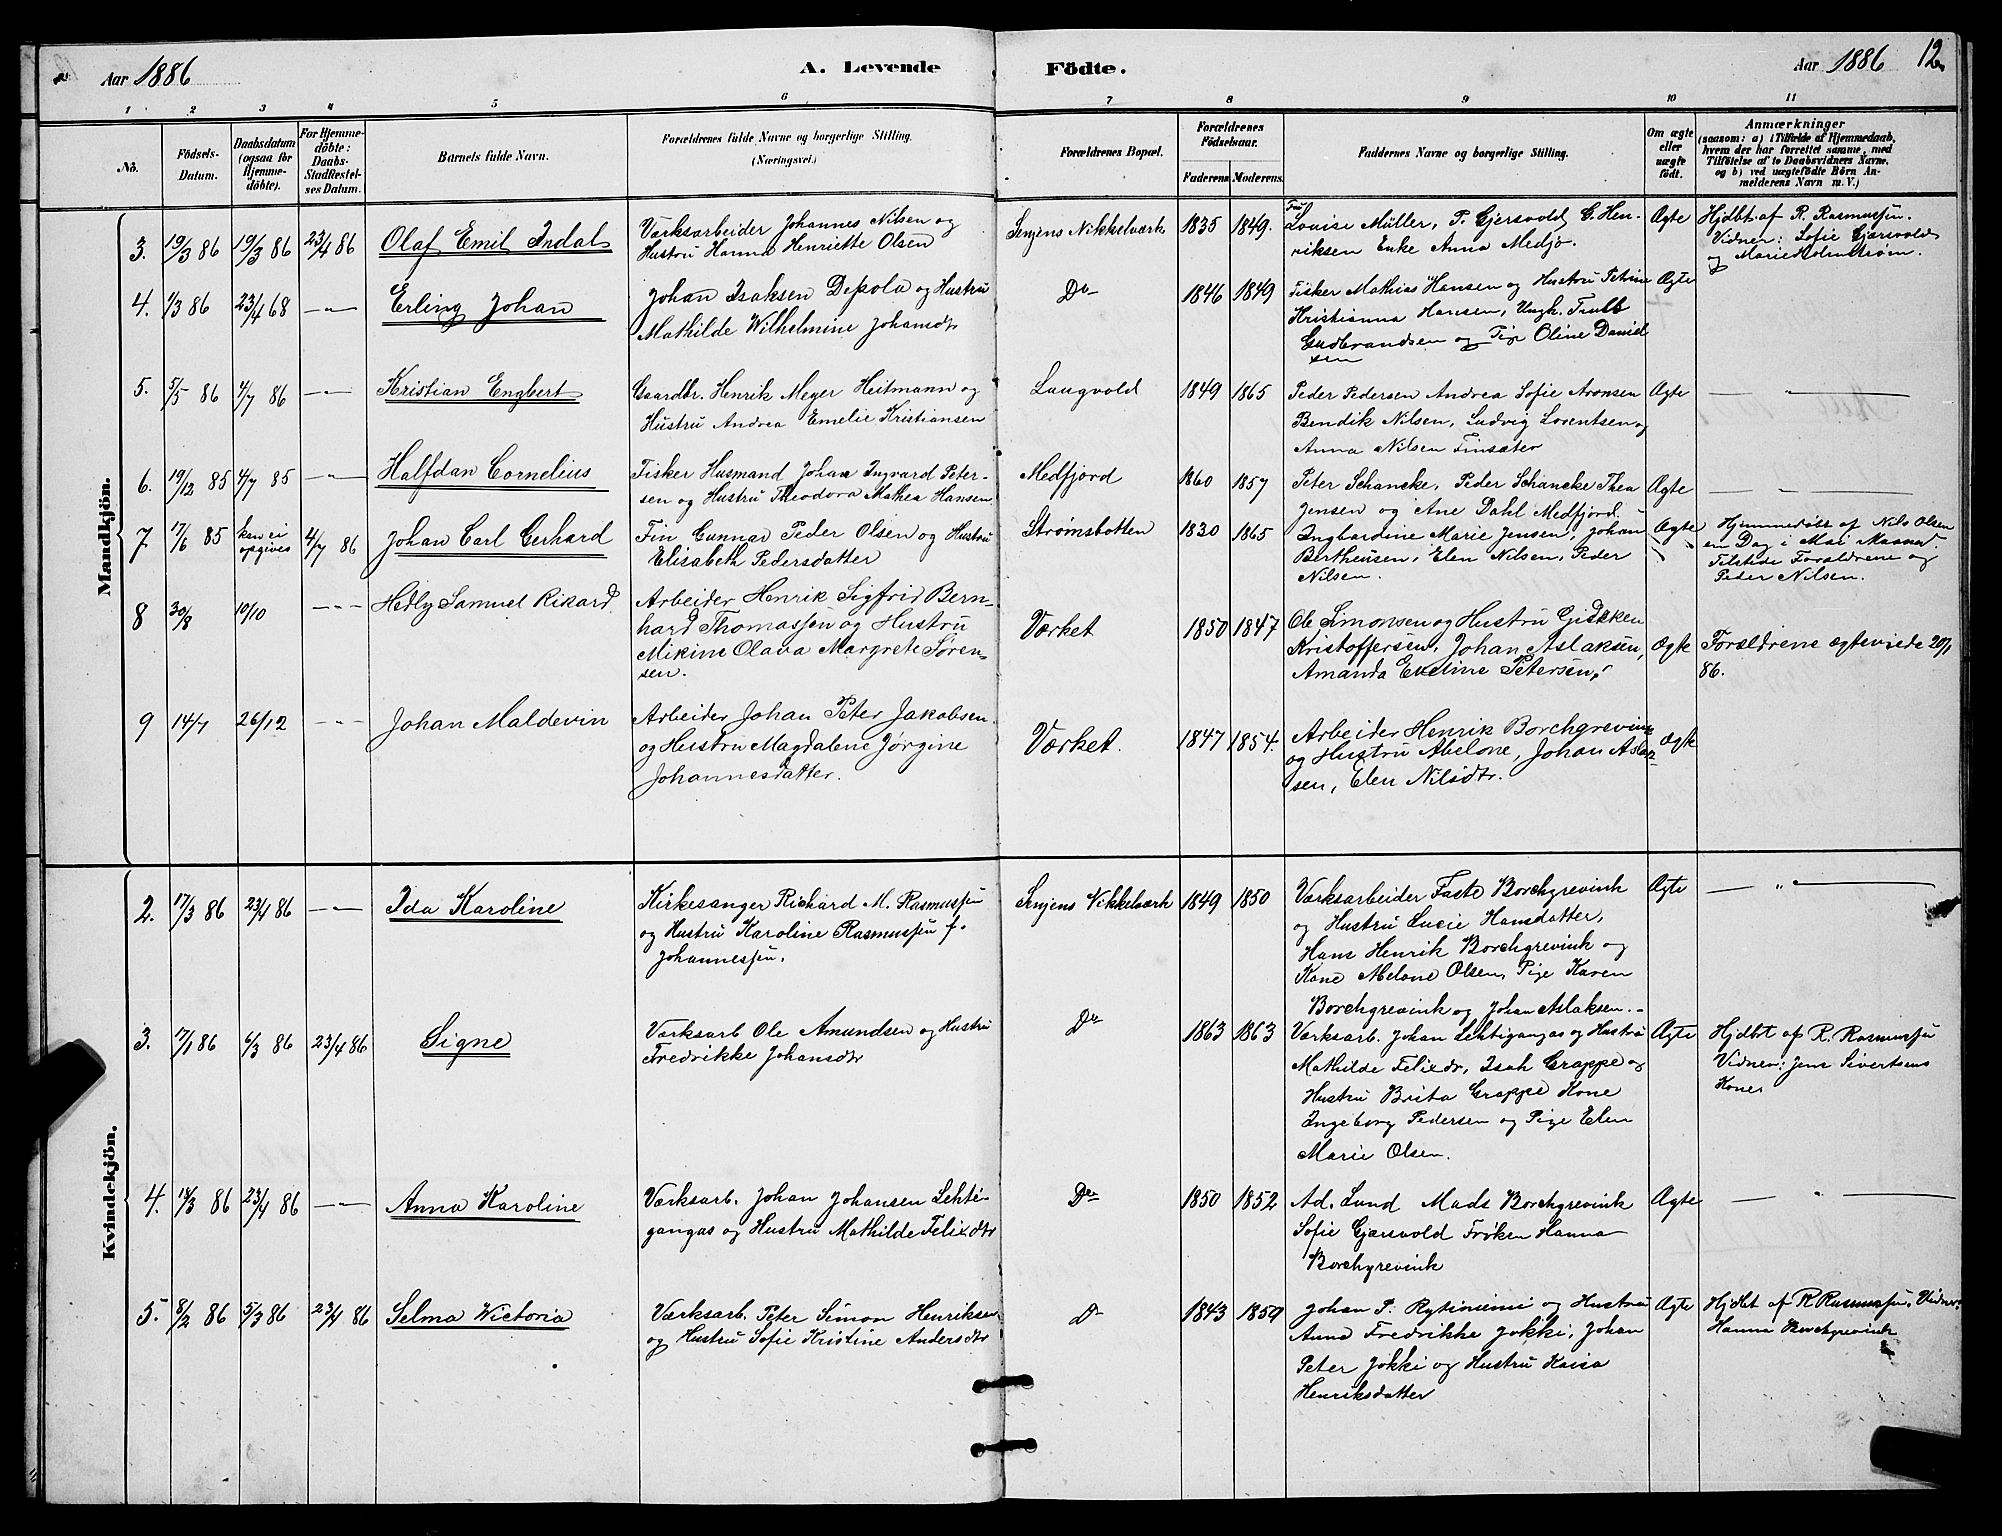 Aar 1886
A. Levende
Fødte.
Aar 1886
12
1 2 3 4 5 6 7 8 9 10 11
No.
Födsels-
Datum.
Daabsdatum
(ogsaa for
Hjemme-
döbte).
For Hjemme-
döbte:
Daabs-
Stadfæstel-
ses Datum.
Barnets fulde Navn.
Forældrenes fulde Navne og borgerlige Stilling.
(Næringsvei.)
Forældrenes Bopæl.
Forældrenes
Födselsaar.
Faderens Moderens.
Faddernes Navne og borgerlige Stilling.
Om ægte
eller
uægte
födt.
Anmærkninger
(saasom: a) i Tilfælde af Hjemmedaab,
hvem der har forrettet samme, med
Tilföielse af to Daabsvidners Navne,
og b) ved uægtefödte Börn An-
melderens Navn m. V.)
Mandkjön.
3. 19/3 86 19/3 86 23/4 86 Olaf Emil Indal
Værksarbeider Johannes Nilsen og
Hustru Hanna Henriette Olsen
Senjens Nikkelværk 1835 1849.
Fru
Louise Müller, P. Gjersvold, G. Hen-
riksen Enke Anna Medjo.
Ægte
Hjdbt af R. Rasmussen.
Vidner: Sofie Gjærsvold
og Marie Holmstrøm.
4. 1/3 86 23/4 68 —"— Erling Johan
Johan Isaksen Depola og Hustru
Mathilde Wilhelmine Johansdtr
Do 1846 1849
Fisker Mathias Hansen og Hustru Petrine
Kristianna Hansen, Ungk. Truls
Gudbrandsen og Pige Oline Daniel
sen
Ægte
5. 5/5 86 4/7 86 —"— Kristian Engbert
Gaardbr. Henrik Meyer Heitmann og
Hustru Andrea Emelie Kristiansen
Laugvold 1849 1865
Peder Pedersen Andrea Sofie Aronsen
Bendik Nilsen, Ludvig Lorentsen og
Anna Nilsen Finsæter
Ægte — " —
6. 19/12 85 4/7 85 —"— Halfdan Cornelius
Fisker Husmand Johan Ingvard Peter-
sen og Hustru Theodora Mathea Hansen
Medfjord 1860 1857
Peter Schancke, Peder Schancke Thea
Jensen og Ane Dahl Medfjord.
Ægte — " —
7. 17/6 85 kan ei
opgives 4/7 86 Johan Carl Gerhard
Fin Gunnar Peder Olsen og Hustru
Elisabeth Pedersdatter
Strømsbotten 1830 1865
Ingbardine Marie Jensen, Johan
Bertheusen, Elen Nilsen, Peder
Nilsen.
Ægte
Hjemmedøbt af Nils Olsen
en Dag i Mai Maaned.
Tilstede Forældrene og
Peder Nilsen.
8 30/8 10/10 —"— Hedly Samuel Rikard
Arbeider Henrik Sigfrid Bern-
hard Thomassen og Hustru
Mikine Olava Margrete Søren-
sen.
Værket 1850 1847
Ole Simonsen og Hustru Gidsken
Kristoffersen, Johan Aslaksen,
Amanda Eveline Petersen.
Ægte
Forældrene ægteviede 20/1
86.
9 14/7 26/12 —"— Johan Maldevin
Arbeider Johan Peter Jakobsen
og Hustru Magdalene Jørgine
Johannesdatter.
Værket. 1847 1854.
Arbeider Henrik Borchgrevink
og Hustru Abelone, Johan Aslak-
sen, Elen Nilsdtr.
Ægte
Kvindekjön.
2. 17/3 86 23/4 86 —"— Ida Karoline
Kirkesanger Richard M. Rasmussen
og Hustru Karoline Rasmussen f.
Johannessen.
Senjens Nikkelværk 1849 1850
Værksarbeider Faste Borchgrevink
og Hustru Lucie Hansdatter,
Hans Henrik Borchgrevink og
Kone Melone Olsen, Pige Karen
Borchgrevink og Johan Aslaksen.
Ægte — " —
3. 17/1 86 6/3 86 23/4 86 Signe
Værksarb Ole Amundsen og Hustru
Fredrikke Johansdtr
Do 1863 1863
Værksarb. Johan Lehtigangas og Hustru
Mathilde Felixdr, Isak Grappe og
Hustru Brita Grappe Kone
Ingeborg Pedersen og Pige Elen
Marie Olsen.
Ægte
Hjdbt af R. Rasmussen
Vidner: Jens Sivertsens
Kone
4. 18/3 86 23/4 86 —"— Anna Karoline
Værksarb. Johan Johansen Lehti-
gangas og Hustru Mathilde Felixdtr
Do 1850 1852
Ad. Lund Mads Borchgrevink
Sofie Gjærsvold Frøken Hanna
Borchgrevink
Ægte — " —
5. 8/2 86 5/3 86 23/4 86 Selma Wictoria
Værksarb. Peter Simon Henriksen
og Hustru Sofie Kristine Andersdtr
Do 1843 1859
Johan P. Rytinimi og Hustru
Anna Fredrikke Jokki, Johan
Peter Jokki og Hustru Kaisa
Henriksdatter
Ægte
Hjdbt af R Rasmussen, Vidner
Hanna Borchgrevink